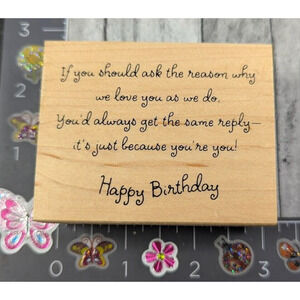 3
If you should ask the reason why
we love you as we do,
You'd always get the same reply—
it's just because you're you!
Happy Birthday
2
1
0
1
2
3